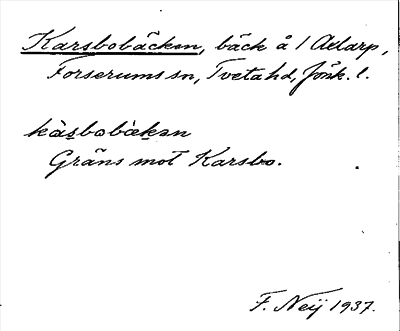 Karsbobäcken, bäck å 1 Adlarp,
Forserums sn, Tveta hd, Jönk. l.
kàsbobàkən
Gräns mot Karsbo.
F. Neij 1937.